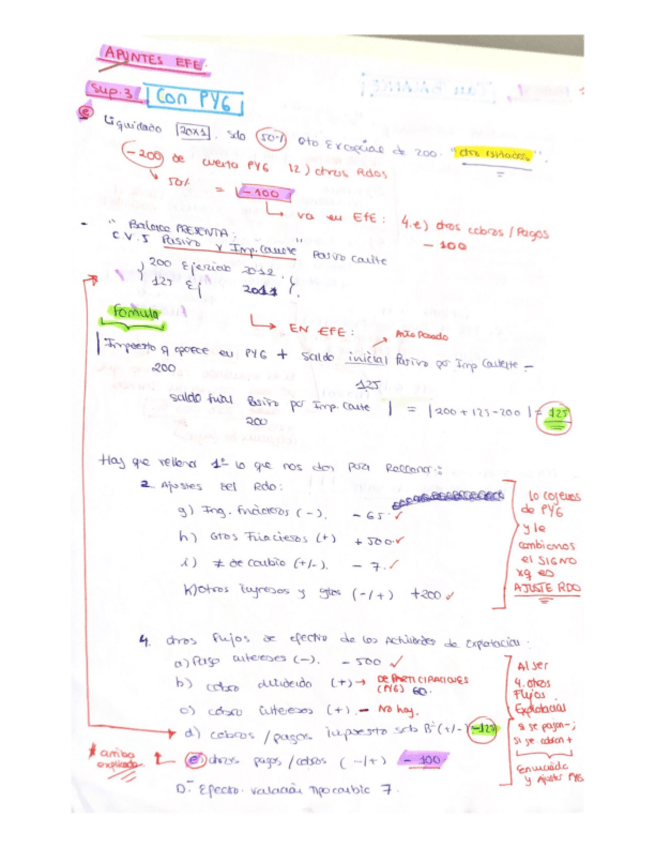 APUNTES EFE.
Sup. 3 Con PYG
e Liquidado 20x1, sdo 50% gto Excepcial de 200. "otros resultados".
-200 de cuenta PYG 12) otros Rdos
50% = -100
va en EFE: 4.e) otros cobros/Pagos
-100
- "Balance PRESENTA:
C.V.5 Pasivo x Imp. Cauete" Pasivo Caulte
200 Ejercicio 2012.
125 Ej 2011
Fórmula
EN EFE: Año Pasado
| Impuesto q aparece en PYG + saldo inicial Pasivo por Imp Caulette -
200 125
saldo final Pasivo por Imp. Caute | = | 200 + 125 - 200 | = 125
200
Hay que rellenar 1º lo que nos dan para Razonar:
2. Ajustes del Rdo:
g) Ing. financieros (-). - 65. ✓
h) Gtos Financieros (+) + 500 ✓
i) ≠ de cambio (+/-). - 7. ✓
k) Otros ingresos y gtos (-/+) +200 ✓
lo cogemos
de PYG
y le
cambiamos
el SIGNO
xq es
AJUSTE RDO
4. Otros flujos de efectivo de las Actividades de Explotación:
a) Pago intereses (-). - 500 ✓
b) cobro dividendo (+) → DE PARTICIPACIONES
(PYG) 60.
c) cobro intereses (+). - No hay.
d) cobros / pagos impuesto sob Bº (+/-) -125
* arriba
explicado
e) otros pagos / cobros (-/+) - 100.
D. Efecto variación tipo cambio 7.
Al ser
4. otros
Flujos
Explotación
si se pagan -;
si se cobran +
Enunciado
y Ajustes PYG